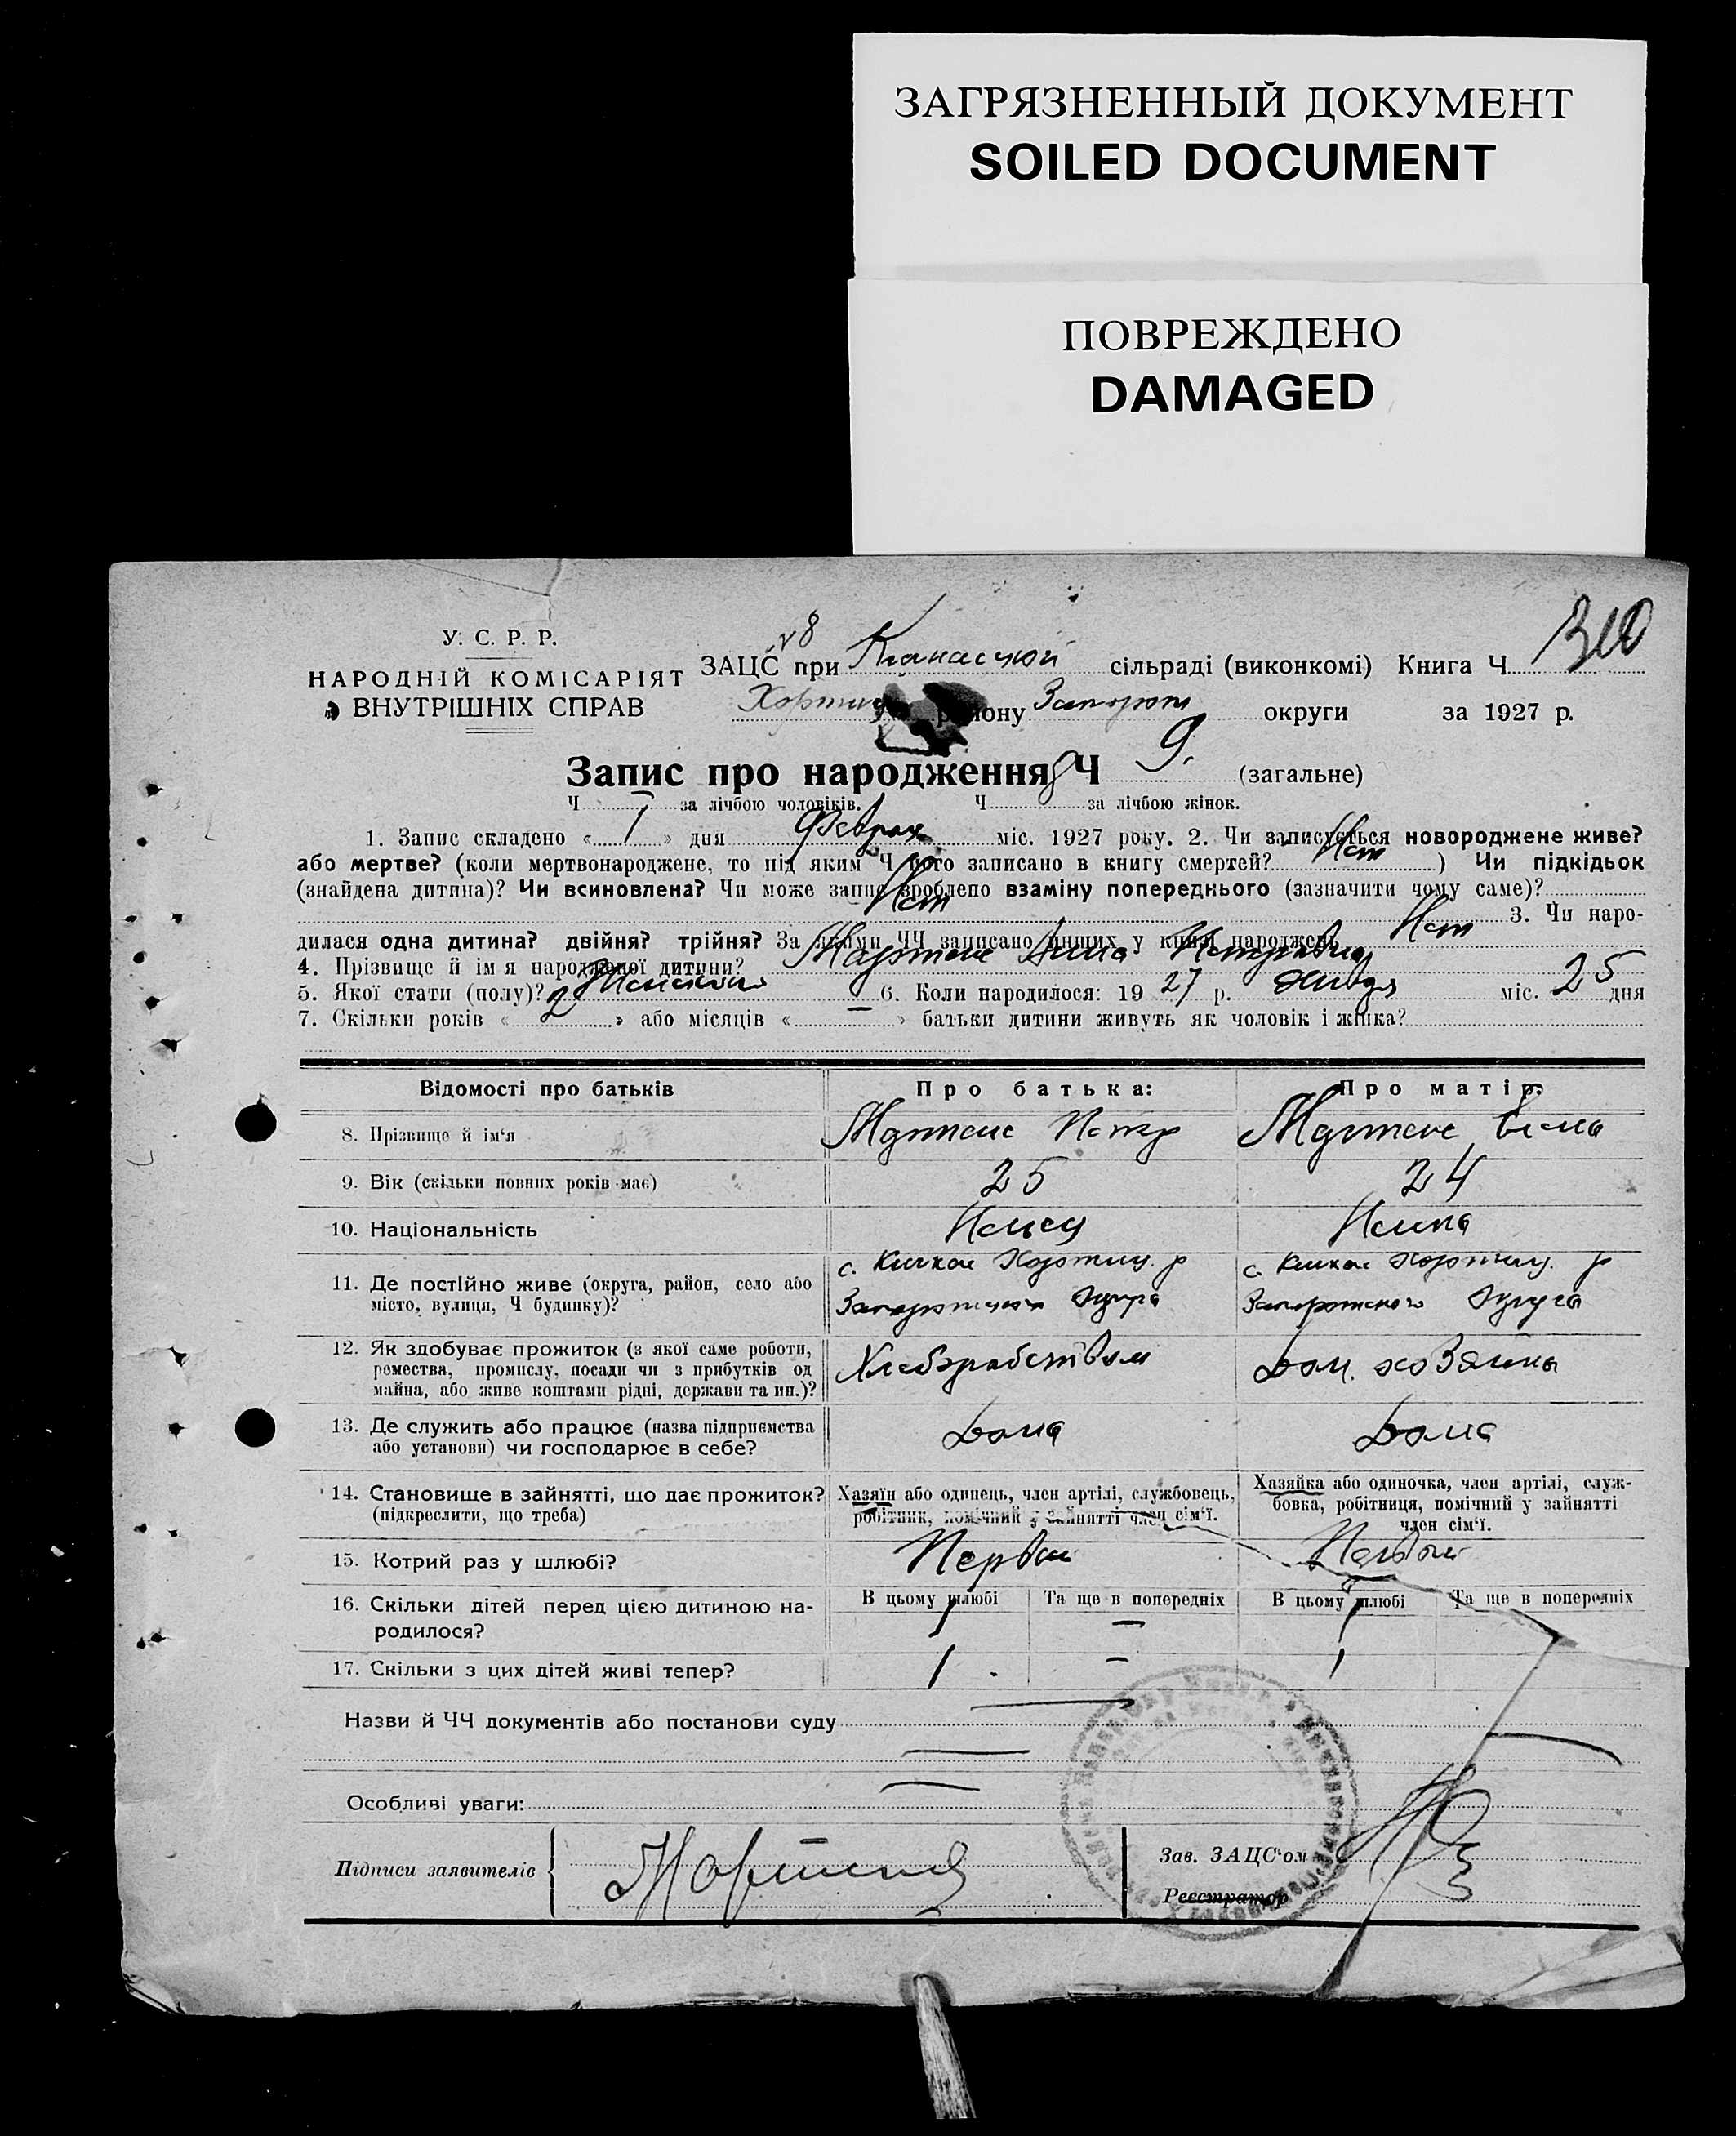 ЗАГРЯЗНЕННЫЙ ДОКУМЕНТ
SOILED DOCUMENT
ПОВРЕЖДЕНО
DAMAGED
У. С. Р. Р.
НАРОДНІЙ КОМІСАРІЯТ
ВНУТРІШНІХ СПРАВ
ЗАЦС при сільраді (виконкомі) Книга Ч
Хортиц району Запорож округи за 1927 р.
Запис про народження Ч 9. (загальне)
Ч за лічбою чоловіків. Ч за лічбою жінок.
1. Запис складено « 1 » дня Февраля міс. 1927 року. 2. Чи записується новороджене живе?
або мертве? (коли мертвонароджене, то під яким Ч його записано в книгу смертей? Нет ) Чи підкідьок
(знайдена дитина)? Чи всиновлена? Чи може запис зроблено взаміну попереднього (зазначити чому саме)?
Нет 3. Чи наро-
дилася одна дитина? двійня? трійня? За якими ЧЧ записано инших у книзі народжень Нет
4. Прізвище й ім я народженої дитини? Мартенс Анна Петровна
5. Якої стати (полу)? Женский 6. Коли народилося: 19 27 р. Января міс. 25 дня
7. Скільки років « 2 » або місяців « — » батьки дитини живуть як чоловік і жінка?
Відомості про батьків Про батька: Про матір:
8. Прізвище й ім'я Мартенс Петр Мартенс
9. Вік (скільки повних років має) 25 24
10. Національність Немец Немка
11. Де постійно живе (округа, район, село або місто, вулиця, Ч будинку)? с. Кичкас Хортиц. р Запорожского Округа с. Кичкас Хортиц. р Запорожского Округа
12. Як здобуває прожиток (з якої саме роботи, ремества, промислу, посади чи з прибутків од майна, або живе коштами рідні, держави та ин.)? Хлебопаботвом Дом. хозяйка
13. Де служить або працює (назва підприємства або установи) чи господарює в себе? Дома Дома
14. Становище в зайнятті, що дає прожиток? (підкреслити, що треба) Хазяїн або одинець, член артілі, службовець, робітник, помічний у зайнятті член сім'ї. Хазяйка або одиночка, член артілі, служ-бовка, робітниця, помічний у зайнятті член сім'ї.
15. Котрий раз у шлюбі? Первый Первый
16. Скільки дітей перед цією дитиною на-родилося? В цьому шлюбі 1 Та ще в попередніх — В цьому шлюбі 1 Та ще в попередніх
17. Скільки з цих дітей живі тепер? 1 — 1
Назви й ЧЧ документів або постанови суду
Особливі уваги:
Підписи заявителів
Зав. ЗАЦС'ом
Реєстратор